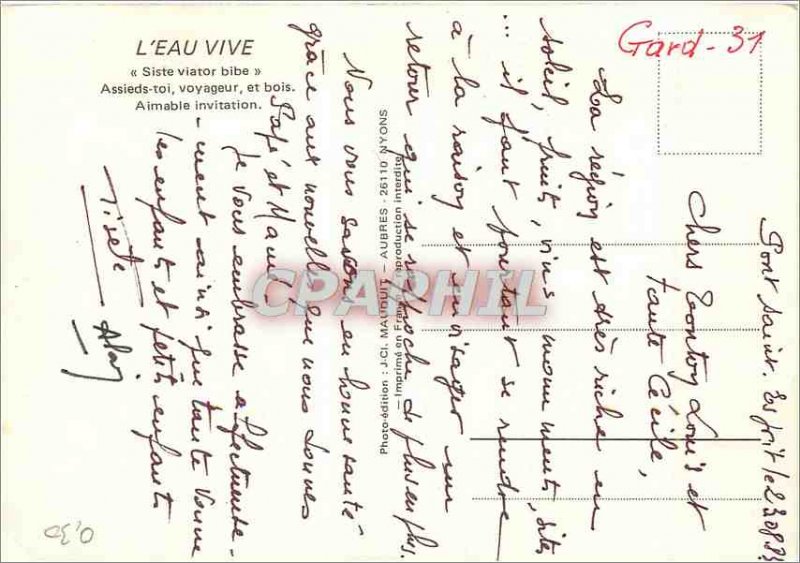 L'EAU VIVE
« Siste viator bibe »
Assieds-toi, voyageur, et bois.
Aimable invitation.
Photo-édition : J-Cl. MAUDUIT — AUBRES - 26110 NYONS
— Imprimé en France — Reproduction interdite
Gard - 31
CPAPHIL
Pont Saint. Esprit le 23.08.83
Chers Tonton Louis et
tante Cécile,
La région est très riche en
soleil, fruits, vins, monuments, sites
... il faut pourtant se rendre
à la raison et envisager un
retour qui se rapproche de plus en plus.
Nous vous savons en bonne santé
grâce aux nouvelles que nous donnes
Papé et Mamé
Je vous embrasse affectueuse-
-ment ainsi que tante
les enfants et petits enfants
Alain
0,30